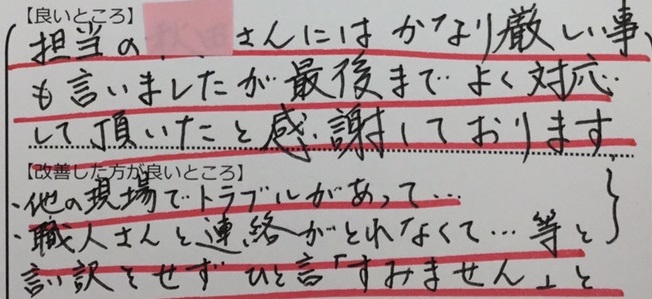 【良いところ】
担当の さんにはかなり厳しい事
も言いましたが最後までよく対応
して頂いたと感謝しております
【改善した方が良いところ】
・他の現場でトラブルがあって…
・職人さんと連絡がとれなくて…等と
言い訳をせずひと言「すみません」と